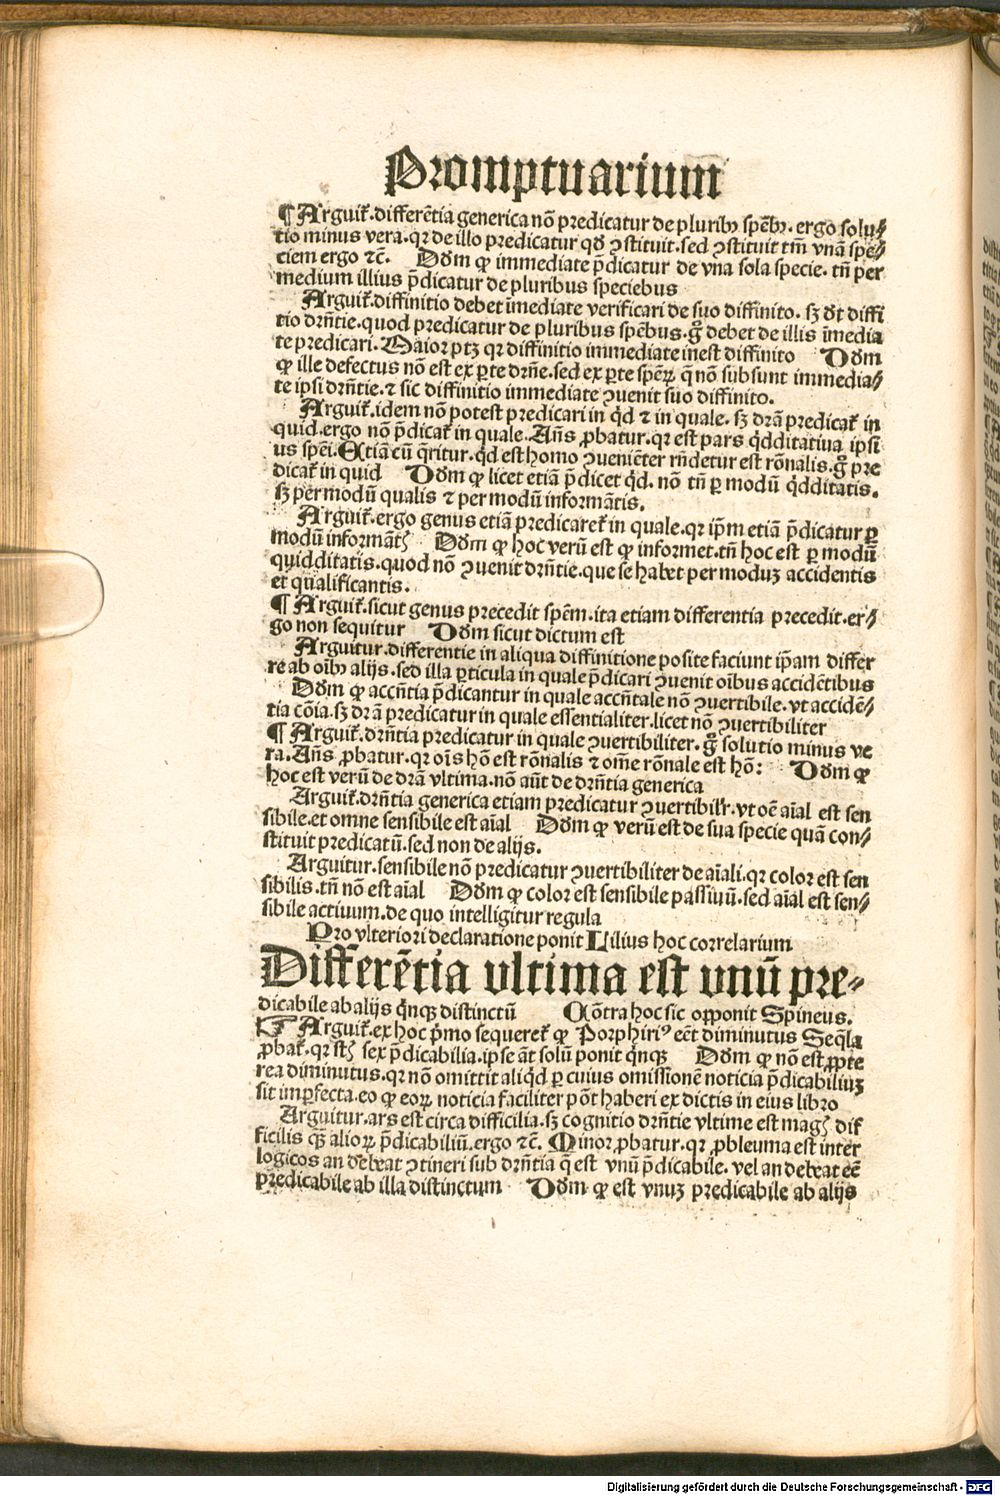 Promptuarium
¶ Arguit᷑.differẽtia generica nõ predicatur de pluribꝰ spẽbꝰ. ergo solu⸗
tio minus vera.qꝛ de illo predicatur qđ ꝯstituit.sed ꝯstituit tm̃ vnã spe⸗
ciem ergo ⁊c̃. Dđm ꝙ immediate p̃dicatur de vna sola specie. tñ per
medium illius p̃dicatur de pluribus speciebus
Arguit᷑.diffinitio debet ĩmediate verificari de suo diffinito. sꝫ đt diffi
tio drñtie.quod predicatur de pluribus spẽbus.g̊ debet de illis ĩmedia
te predicari.Maior ptꝫ qꝛ diffinitio immediate inest diffinito Dđm
ꝙ ille defectus nõ est ex ꝑte drñe.sed ex ꝑte spẽꝝ q̃ nõ subsunt immedia⸗
te ipsi drñtie.⁊ sic diffinitio immediate ꝯuenit suo diffinito.
Arguit᷑.idem nõ potest predicari in qđ ⁊ in quale. sꝫ drã predicat᷑ in
quid.ergo nõ p̃dicat᷑ in quale.Añs ꝓbatur.qꝛ est pars qđditatiua ipsi
us spẽi.Etiã cũ q̃ritur.qđ est homo ꝯueniẽter rñdetur est rõnalis.g̊ pre
dicat᷑ in quid Dđm ꝙ licet etiã p̃dicet qđ. nõ tñ ꝑ modũ qđditatis.
sꝫ per modũ qualis ⁊ per modũ informãtis.
Arguit᷑.ergo genus etiã predicaret᷑ in quale.qꝛ ip̃m etiã p̃dicatur ꝑ
modũ informãtꝭ Dđm ꝙ hoc verũ est ꝙ informet.tñ hoc est ꝑ modũ
quidditatis.quod nõ ꝯuenit drñtie.que se habet per moduꝫ accidentis
et qualificantis.
¶ Arguit᷑.sicut genus precedit spẽm.ita etiam differentia precedit.er⸗
go non sequitur Dđm sicut dictum est
Arguitur.differentie in aliqua diffinitione posite faciunt ip̃am differ
re ab oĩbꝰ alijs.sed illa ꝑticula in quale p̃dicari ꝯuenit oĩbus accidẽtibus
Dđm ꝙ accñtia p̃dicantur in quale accñtale nõ ꝯvertibile.vt accidẽ⸗
tia cõia.sꝫ drã predicatur in quale essentialiter.licet nõ ꝯuertibiliter
¶ Arguit᷑.drñtia predicatur in quale ꝯuertibiliter.g̊ solutio minus ve
ra.Añs ꝓbatur.qꝛ oĩs hõ est rõnalis ⁊ om̃e rõnale est hõ: Dđm ꝙ
hoc est verũ de drã vltima.nõ aũt de drñtia generica
Arguit᷑.drñtia generica etiam predicatur ꝯuertibilr̃.vt oẽ aĩal est sen
sibile.et omne sensibile est aĩal Dđm ꝙ verũ est de sua specie quã con⸗
stituit predicatũ.sed non de alijs.
Arguitur.sensibile nõ predicatur ꝯuertibiliter de aĩali.qꝛ color est sen
sibilis.tñ nõ est aĩal Dđm ꝙ color est sensibile passiuũ.sed aĩal est sen⸗
sibile actiuum.de quo intelligitur regula
Pro vlteriori declaratione ponit Lilius hoc correlarium
Differẽtia vltima est vnũ pre⸗
dicabile ab alijs q̃nqꝫ distinctũ Cõtra hoc sic opponit Spineus.
☞ Arguit᷑.ex hoc p̃mo sequeret᷑ ꝙ Porphiriꝰ eẽt diminutus Seq̃la
ꝓbat᷑.qꝛ st̃ sex p̃dicabilia.ipse aũt solũ ponit q̃nqꝫ Dđm ꝙ nõ est ꝓpte
rea diminutus.qꝛ nõ omittit aliqđ ꝑ cuius omissionẽ noticia p̃dicabiliuꝫ
sit imꝑfecta.eo ꝙ eoꝝ noticia faciliter põt haberi ex dictis in eius libro
Arguitur.ars est circa difficilia.sꝫ cognitio drñtie vltime est magꝭ dif
ficilis qꝫ̃ alioꝝ p̃dicabiliũ.ergo ⁊c̃. Minor ꝓbatur.qꝛ ꝓbleuma est inter
logicos an debeat ꝯtineri sub drñtia q̃ est vnũ p̃dicabile.vel an debeat eẽ
predicabile ab illa distinctum Dđm ꝙ est vnuꝫ predicabile ab alijs
Digitalisierung gefördert durch die Deutsche Forschungsgemeinschaft - DFG